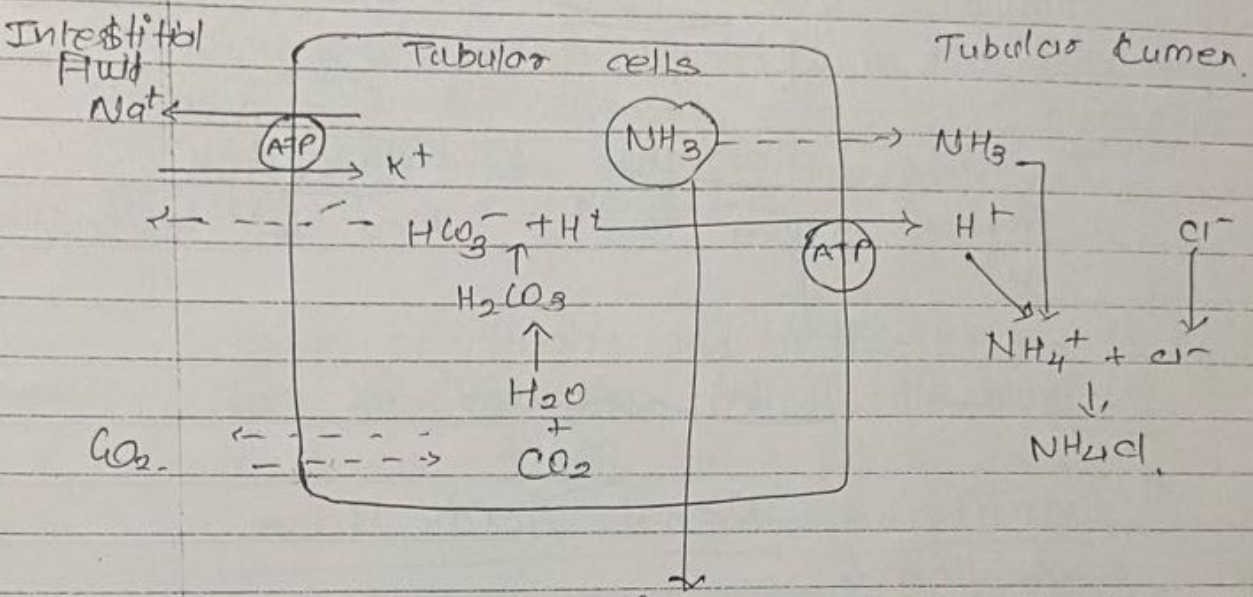 Interstitial Fluid
Tubular cells
Tubular Lumen.
Na⁺
ATP
K⁺
NH₃
NH₃
HCO₃⁻ + H⁺
ATP
H⁺
Cl⁻
H₂CO₃
NH₄⁺ + Cl⁻
H₂O
+
CO₂.
CO₂
NH₄Cl.